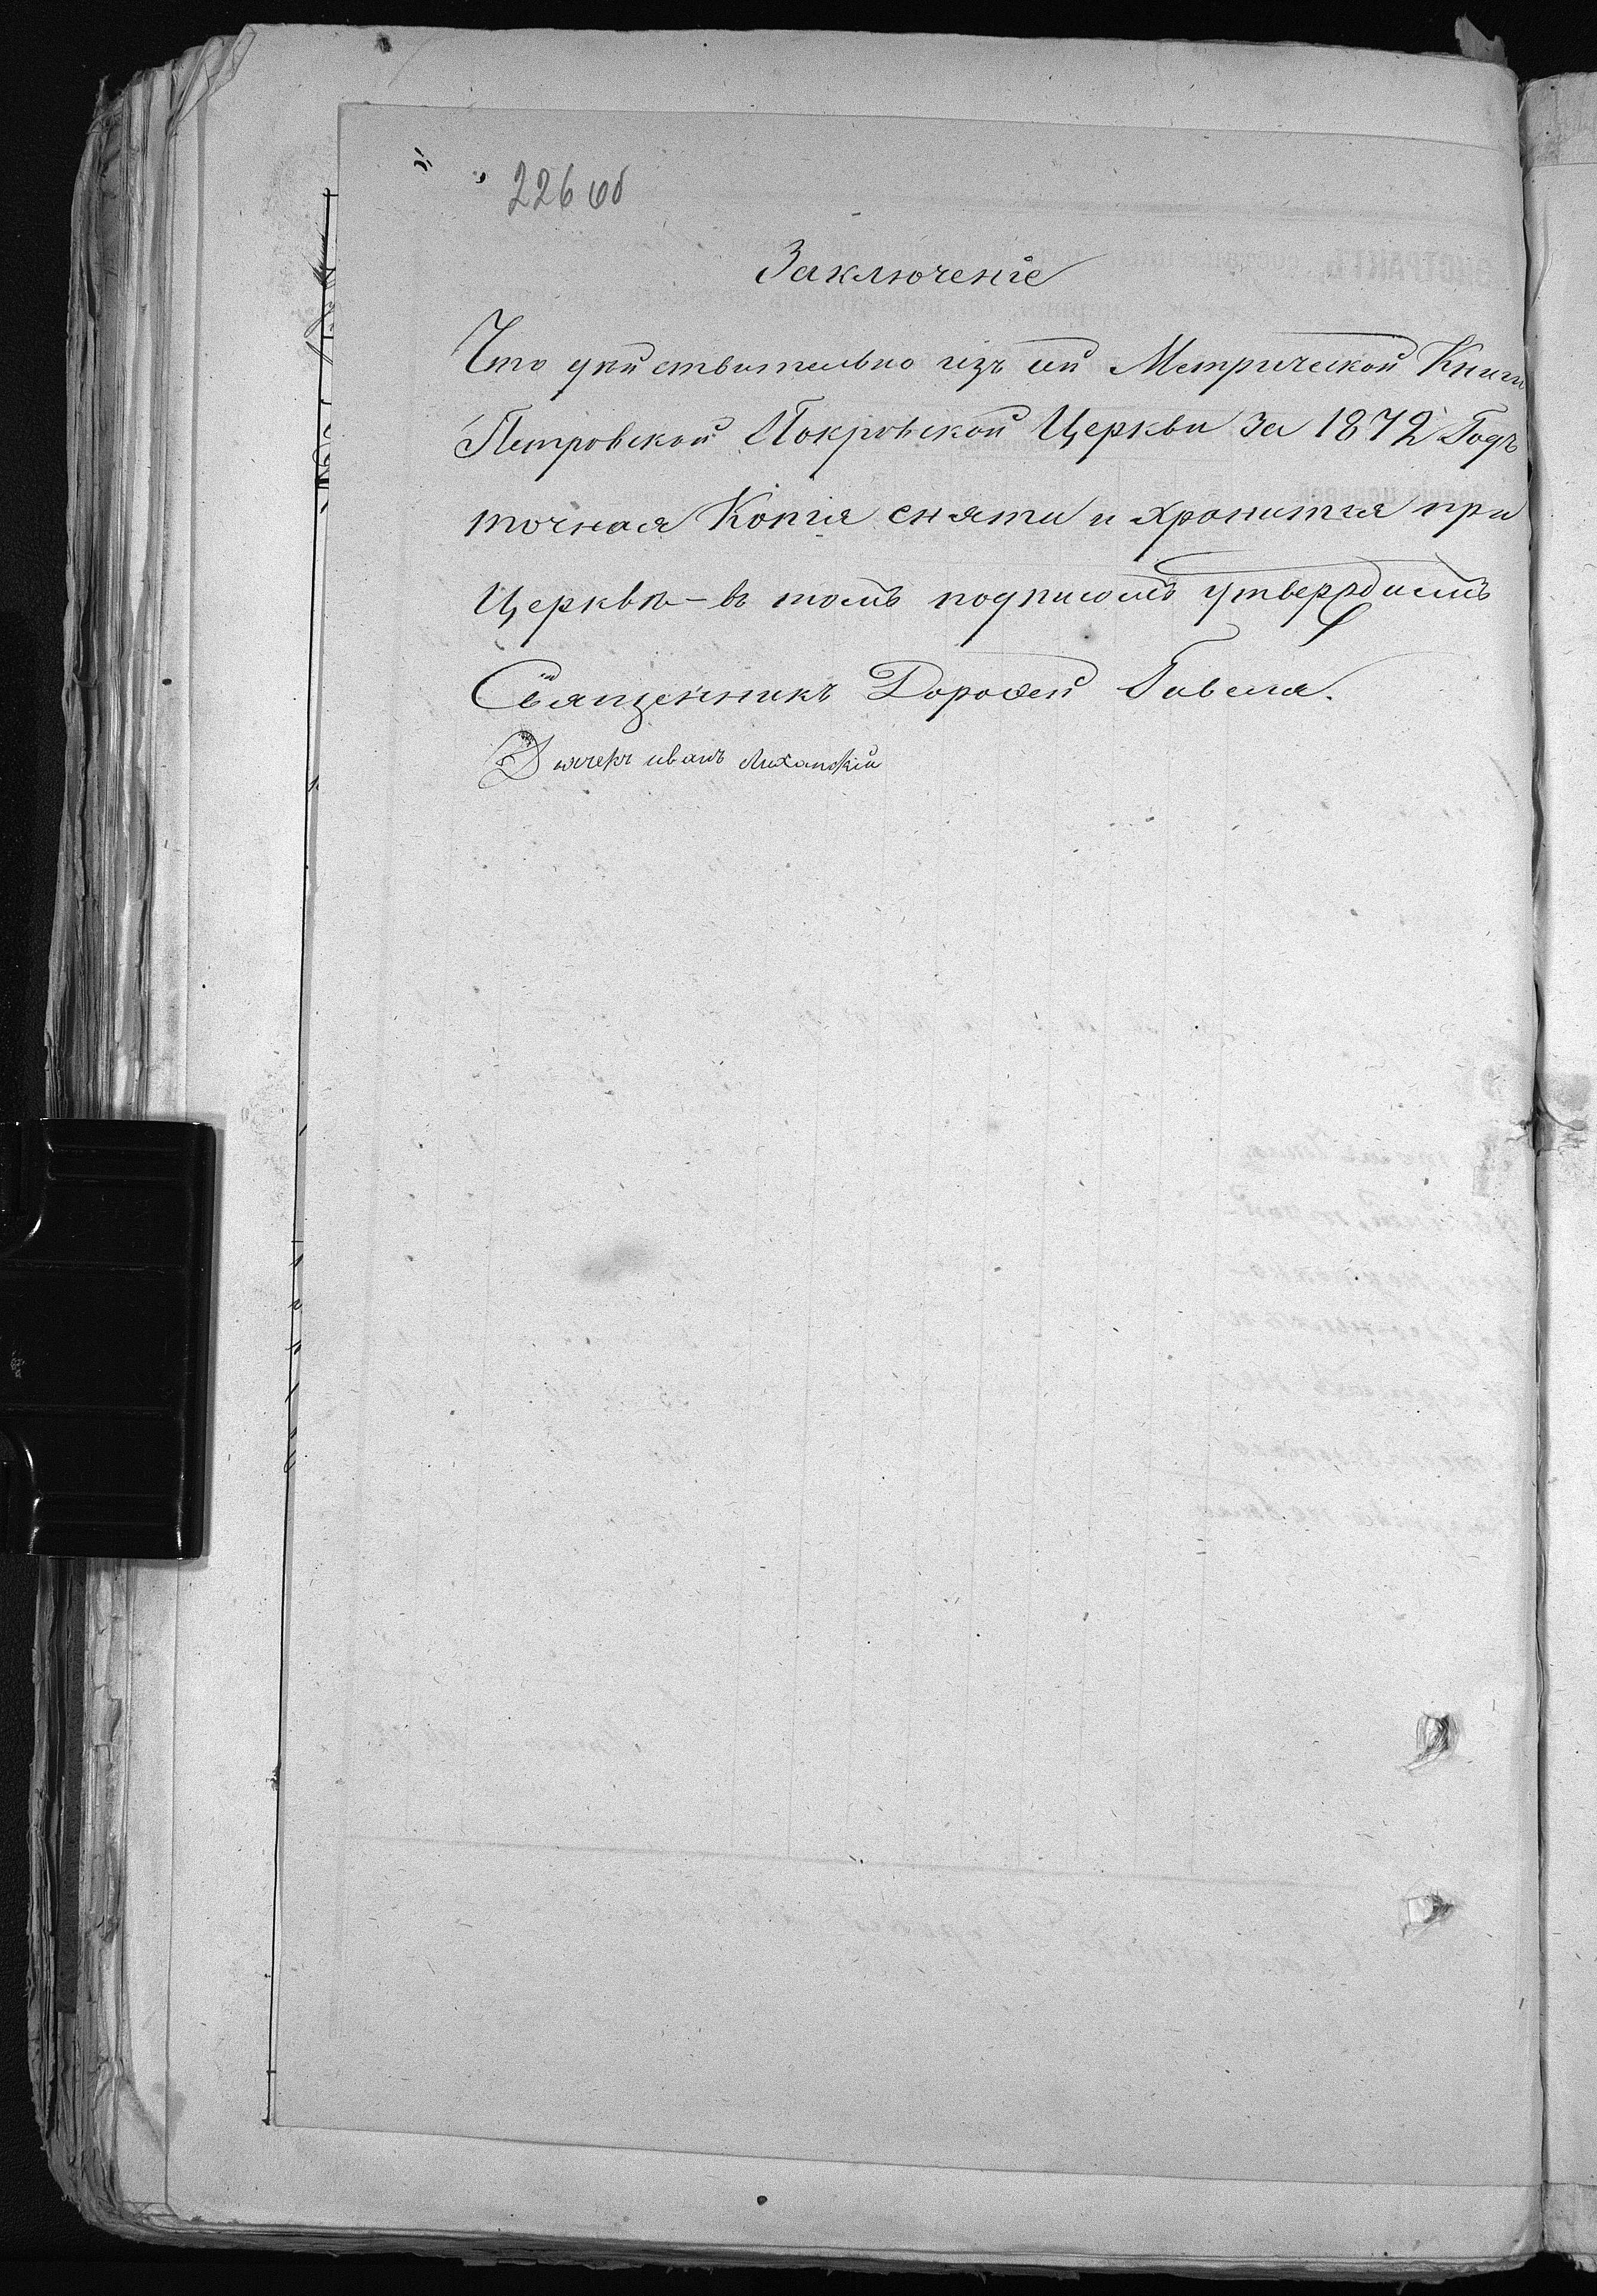 226 об
Заключеніе
Что дѣйствительно изъ сей Метрической Книги
Петровской Покровской Церкви за 1872 Годъ
точная Копія снята и хранится при
Церквѣ - въ томъ подписомъ утвердимъ
Священникъ Дорофей Гавела.
Дьячекъ иванъ Лиханскій